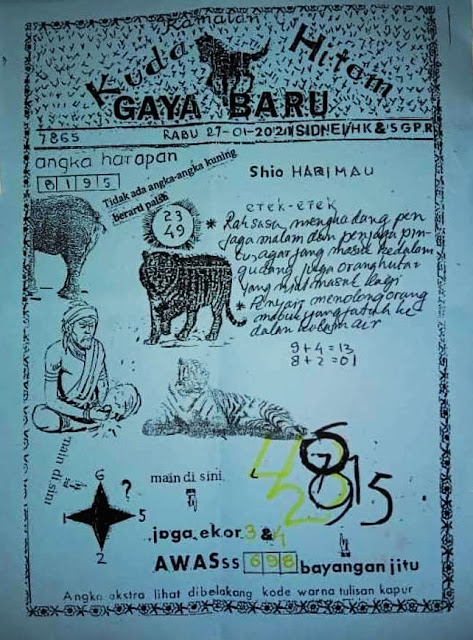 Ramalan
Kuda Hitam
GAYA BARU
7865
RABU 27-01-2021 (SIDNEI/HK & SGP.R
angka harapan
8195
Tidak ada angka-angka kuning
berarti palsu
Shio HARIMAU
erek-erek
23
49
* Raksasa menghadang pen
jaga malam dan penjaga pin
tu agar jang masuk kedalam
gudang juga oranghutan
yang masuk lagi
* Penyair menolong orang
mabuk yang jatuh ke
dalam kolam air
9+4=13
8+2=01
main di sini
6
?
1
5
2
main di sini
4 6
2 8 9 1 5
jaga ekor 3 & 4
AWASss 698 bayangan jitu
Angka ekstra lihat dibelakang kode warna tulisan kapur